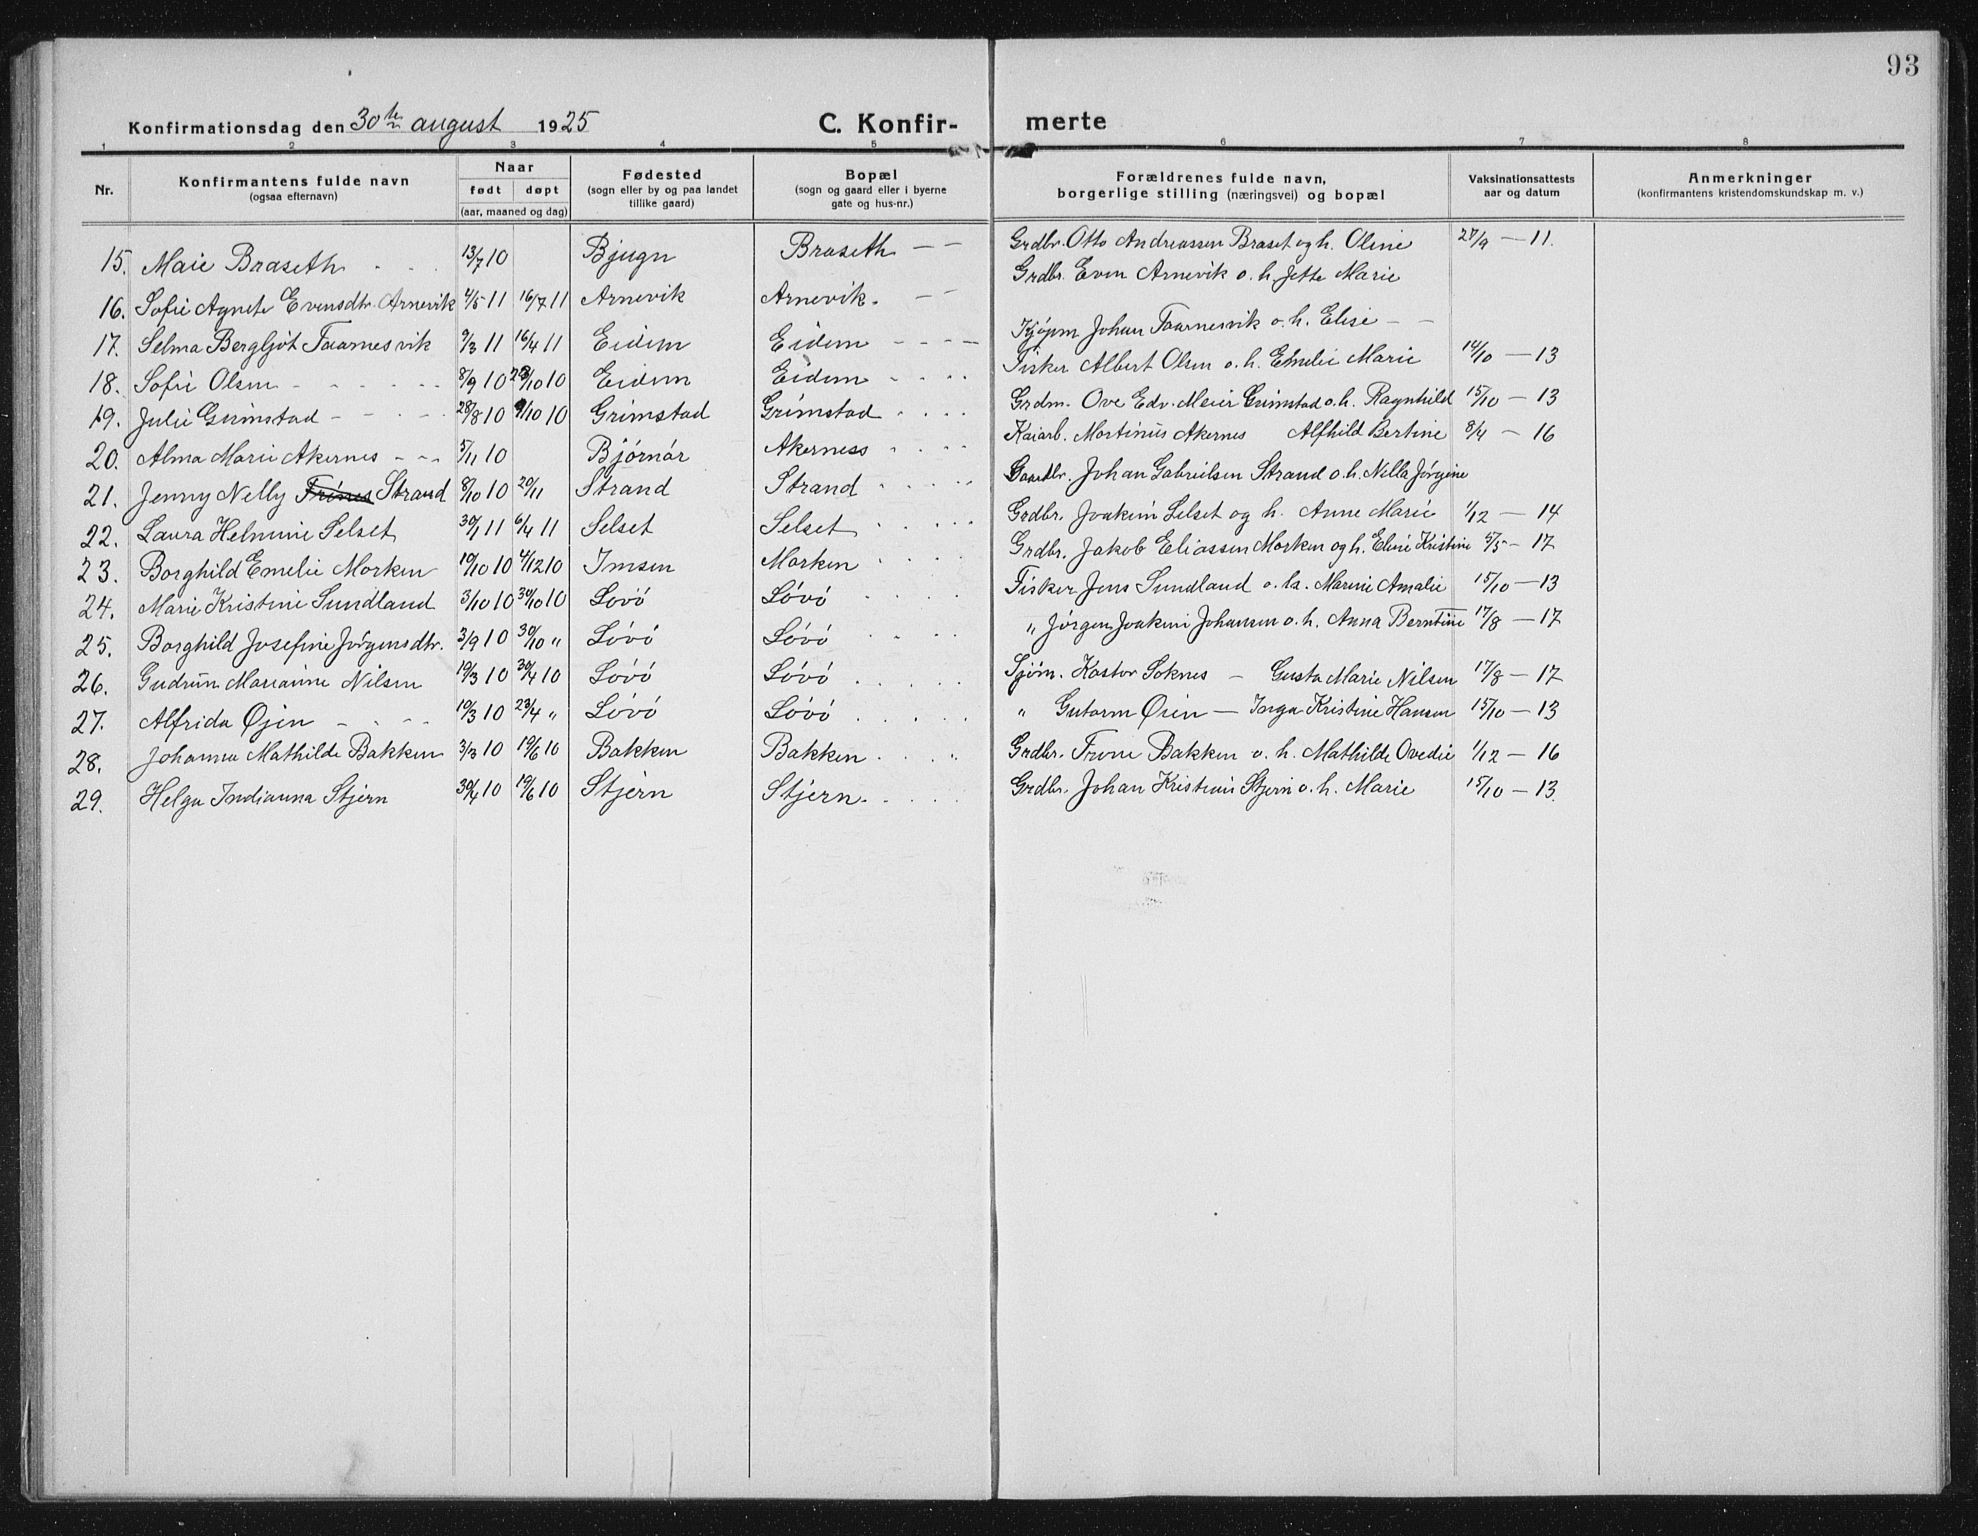 93
Konfirmationsdag den 30te august 1925 C. Konfir- merte
1 2 3 4 5 6 7 8
Nr. Konfirmantens fulde navn (ogsaa efternavn) Naar født døpt (aar, maaned og dag) Fødested (sogn eller by og paa landet tillike gaard) Bopæl (sogn og gaard eller i byerne gate og hus-nr.) Forældrenes fulde navn, borgerlige stilling (næringsvei) og bopæl Vaksinationsattests aar og datum Anmerkninger (konfirmantens kristendomskundskap m. v.)
15. Maie Braseth 13/7 10 Bjugn Braseth Grdbr. Otto Andreassen Braset og h. Oline 27/9 – 11.
16. Sofie Agnete Evensdtr. Arnevik 4/5 11 16/7 11 Arnevik Arnevik. Grdbr. Even Arnevik o. h. Jette Marie
17. Selma Bergljot Faarnesvik 9/3 11 16/4 11 Eidem Eidem Kjøpm Johan Faarnesvik o. h. Elise
18. Sofie Olsen 8/9 10 23/10 10 Eidem Eidem Fisker Albert Olsen o. h. Emelie Marie 14/10 – 13
19. Julie Grimstad 28/8 10 9/10 10 Grimstad Grimstad Grdm. Ove Edv. Meier Grimstad o. h. Ragnhild 15/10 – 13
20. Alma Marie Akernes 5/11 10 Bjørnør Akerness Kaiarb. Mortinus Akernes Alfhild Bertine 8/4 – 16
21. Jenny Nelly Frines Strand 8/10 10 20/11 Strand Strand Gaardbr. Johan Gabrielsen Strand o. h. Nilla Jørgine
22. Laura Helmine Selset 30/1 11 6/4 11 Selset Selset Grdbr. Joakim Selset og h. Anne Marie 1/12 – 14
23. Borghild Emelie Morken 19/10 10 4/12 10 Imsen Morken Grdbr. Jakob Eliassen Morken og h. Eline Kristine 5/5 – 17
24. Marie Kristine Sundland 3/10 10 30/10 10 Løvø Løvø Fisker Jens Sundland o. h. Marine Amalie 15/10 – 13
25. Borghild Josefine Jørgensdtr. 3/9 10 30/10 " Løvø Løvø " Jørgen Joakim Johansen o. h. Anna Berntine 17/8 – 17
26. Gudrun Marianne Nilsen 19/3 10 30/4 10 Løvø Løvø Sjøm. Kastor Soknes – Gusta Marie Nilsen 17/8 – 17
27. Alfrida Øjen 19/3 10 23/4 " Løvø Løvø " Gutorm Øien – Inga Kristine Hansen 15/10 – 13
28. Johanna Mathilde Bakken 3/3 10 19/6 10 Bakken Bakken Grdbr. Trone Bakken o. h. Mathilde Ovedie 1/12 – 16
29. Helga Indianna Stjern 30/4 10 19/6 10 Stjern Stjern. Grdbr. Johan Kristian Stjern o. h. Marie 15/10 – 13.